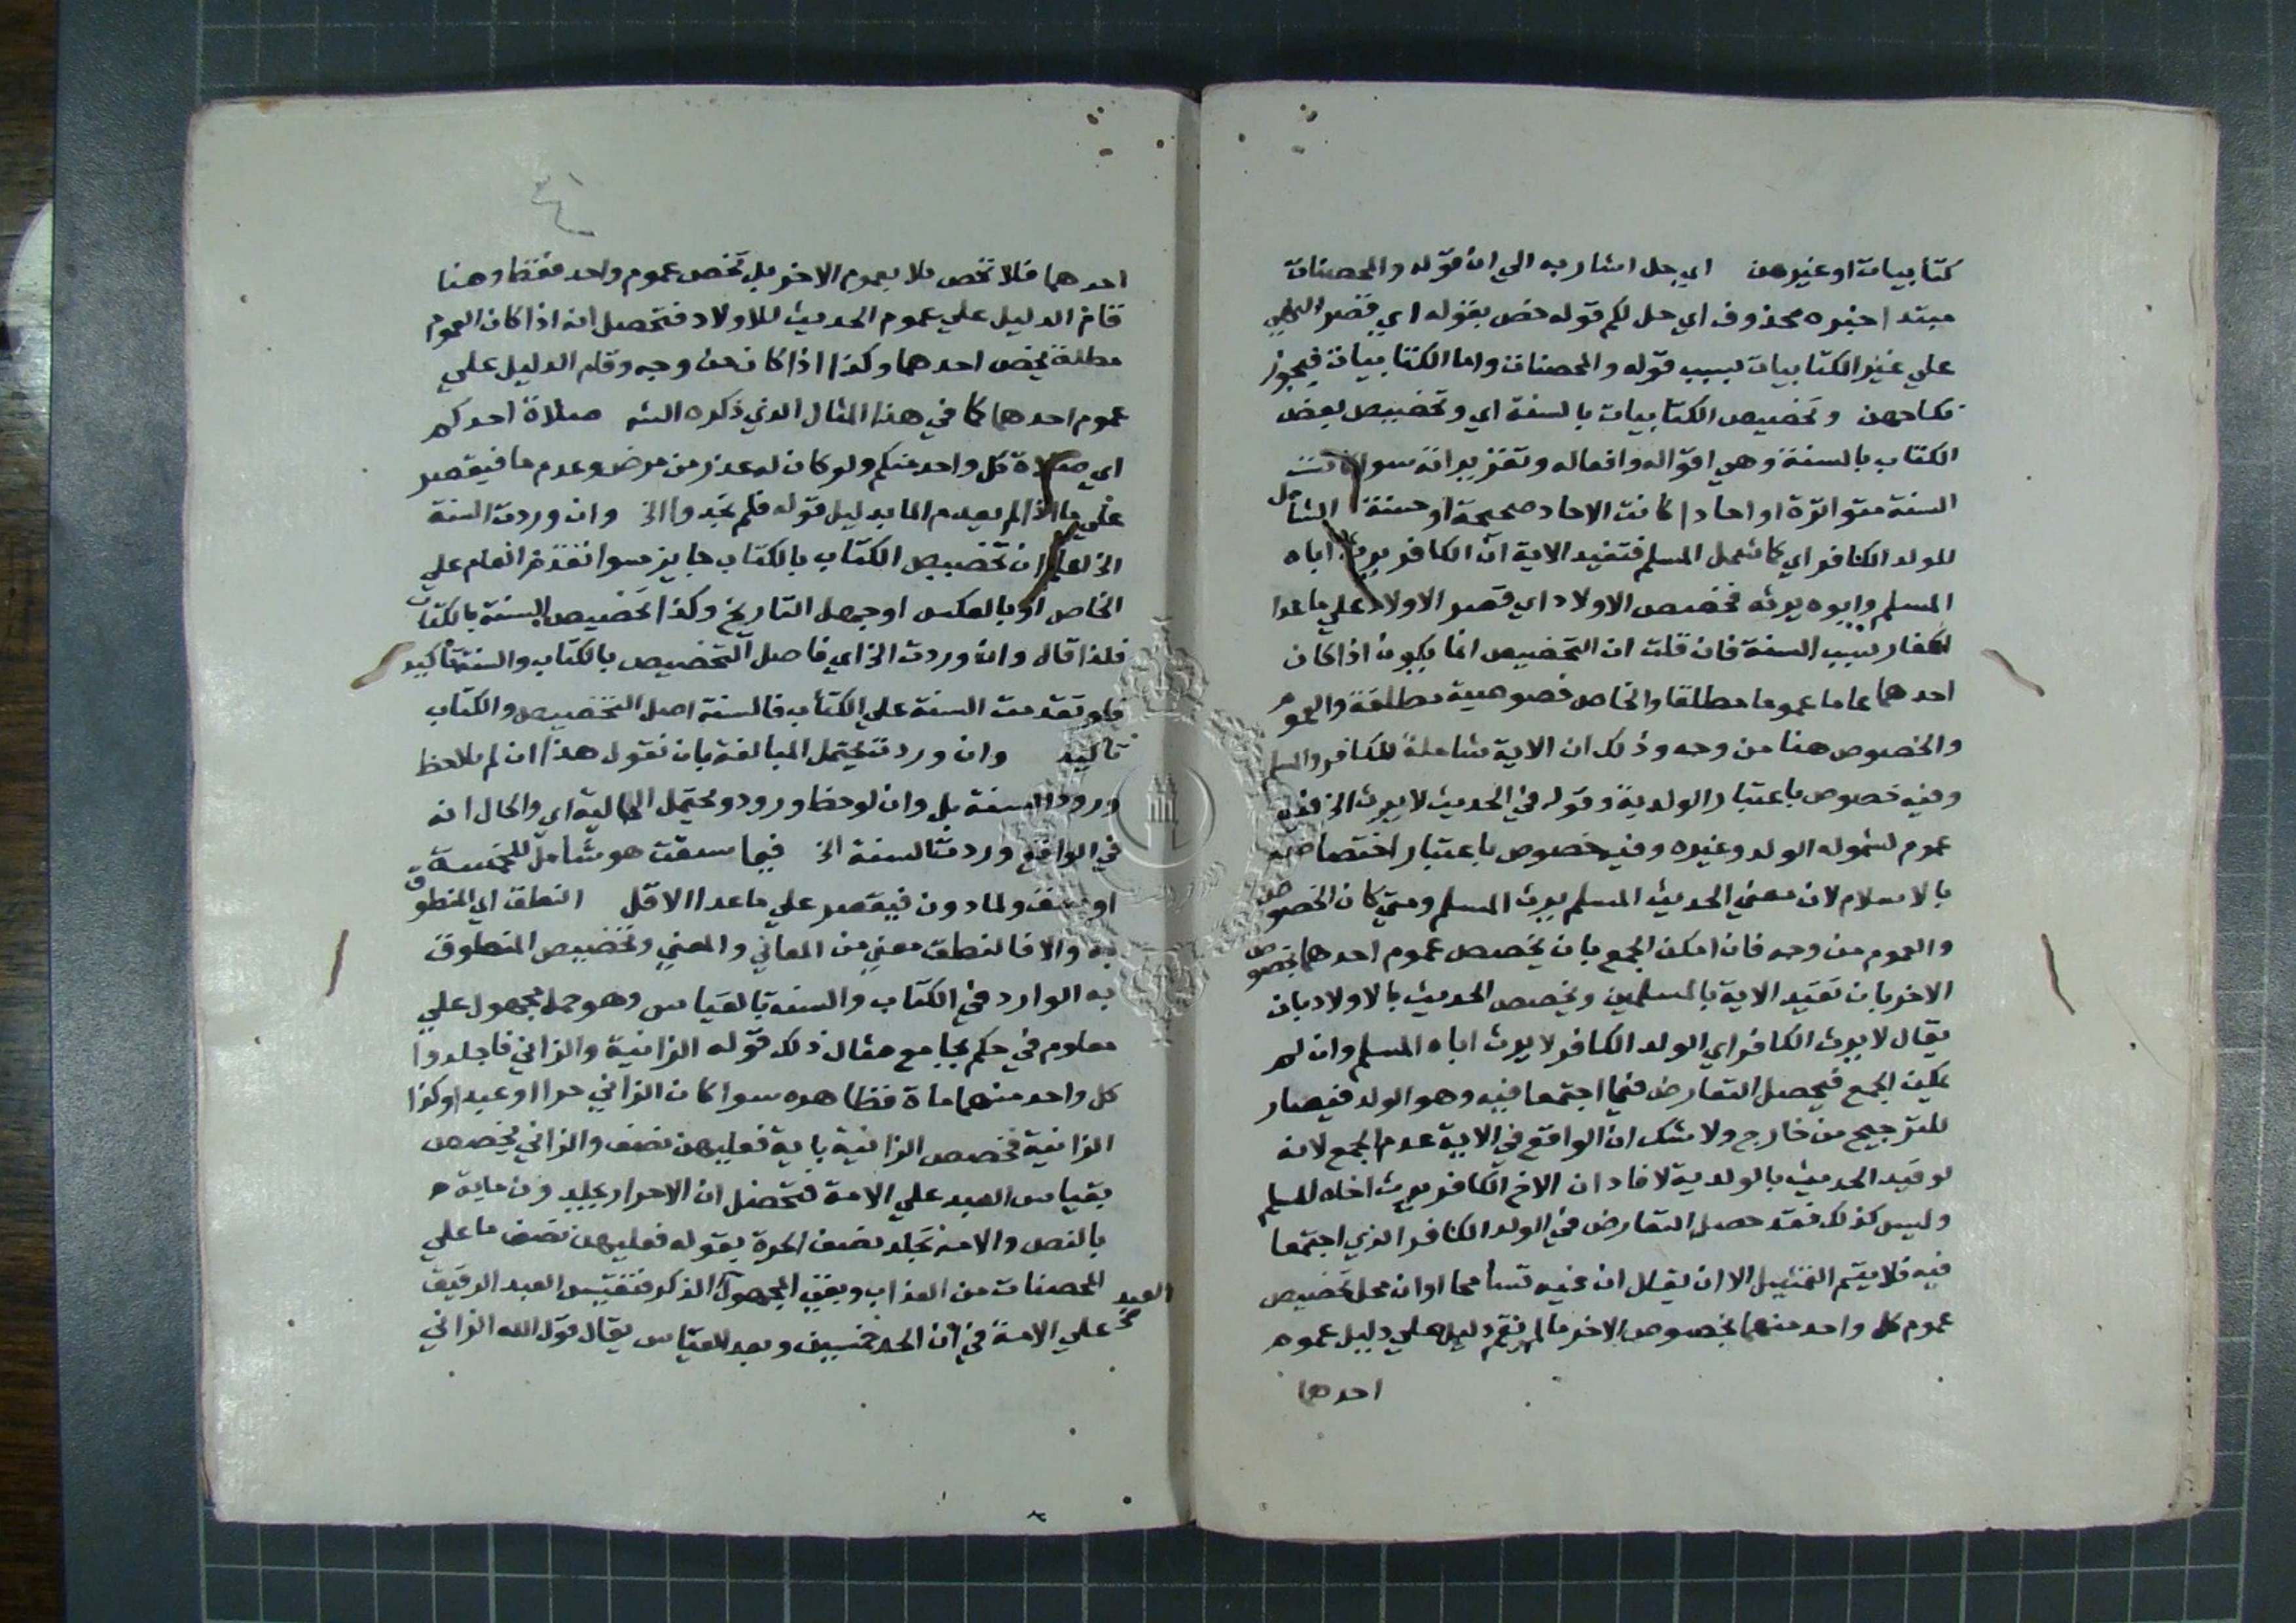 كتابيات او غيرهن اي حل اشار به الي ان قوله والمحصنات
مبتدا خبره محذوف اي حل لكم قوله خص بقوله اي قصر النهي
علي غير الكتابيات بسبب قوله والمحصنات واما الكتابيات فيجوز
نكاحهن وتخصيص الكتابيات بالسنة اي وتخصيص بعض
الكتاب بالسنة وهي اقواله وافعاله وتقريراته سوا كانت
السنة متواترة او احادا كانت الاحاد صحيحة او حسنة الشامل
للولد الكافر اي كما شمل المسلم فتفيد الاية ان الكافر يرث اباه
المسلم وابوه يرثه فخصيص الاولاد اي قصر الاولاد علي ما عدا
الكفار بسبب السنة فان قلت ان التخصيص انما يكون اذا كان
احدهما عاما عموما مطلقا والخاص خصوصية مطلقة والعموم
والخصوص هنا من وجه وذلك ان الاية شاملة للكافر والمسلم
وفيه خصوص باعتبار الولدية وقوله في الحديث لا يرث الخ فيه
عموم لشموله الولد وغيره وفيه خصوص باعتبار اختصاصه
بالاسلام لان معني الحديث المسلم يرث المسلم ومتي كان الخصوص
والعموم من وجه فان امكن الجمع بان يخصص عموم احدهما بخصوص
الاخر بان تقيد الاية بالمسلمين ويخصص الحديث بالاولاد بان
يقال لا يرث الكافر اي الولد الكافر لا يرث اباه المسلم وان لم
يمكن الجمع فيحصل التعارض فيما اجتمعا فيه وهو الولد فيصار
للترجيح من خارج ولا شك ان الواقع في الاية عدم الجمع لانه
لو قيد الحديث بالولدية لافاد ان الاخ الكافر يرث اخاه المسلم
وليس كذلك فقد حصل التعارض في الولد الكافر الذي اجتمعا
فيه فلا يتم التمثيل الا ان يقال ان فيه تسامحا او ان محل تخصيص
عموم كل واحد منهما بخصوص الاخر ما لم يقم دليل علي دليل عموم
احدهما
احدهما فلا تخص بلا بعموم الاخر بل تخص عموم واحد فقط وهنا
قام الدليل علي عموم الحديث للاولاد فتحصل انه اذا كان العموم
مطلقا يخص احدهما وكذا اذا كان من وجه وقام الدليل علي
عموم احدهما كما في هذا المثال الذي ذكره الشه صلاة احدكم
اي صلاة كل واحد منكم ولو كان له عذر من مرض وعدم ما فيقصر
علي ما اذا لم يعدم الما بدليل قوله فلم تجدوا الخ وان وردت السنة
الخ لعل ان تخصيص الكتاب بالكتاب جايز سوا تقدم العام علي
الخاص او بالعكس او جهل التاريخ وكذا تخصيص السنة بالكتاب
فلذا قال وان وردت الخ اي فاصل التخصيص بالكتاب والسنة تاكيد
فلو تقدمت السنة علي الكتاب فالسنة اصل التخصيص والكتاب
تاكيد وان وردت يحتمل المبالغة بان نقول هذا ان لم يلاحظ
ورود السنة بل وان لوحظ ورود ويحتمل الحالية اي والحال انه
في الواقع وردت السنة الخ فيما سقت هو شامل للخمسة
اوسق ولما دون فيقصر علي ما عدا الاقل النطق اي المنطوق
به والا فالنطق معني من المعاني والمعني وتخصيص المنطوق
به الوارد في الكتاب والسنة بالقياس وهو حمل مجهول علي
معلوم في حكم بجامع مثال ذلك قوله الزانية والزاني فاجلدوا
كل واحد منهما ماة فظاهره سوا كان الزاني حرا او عبدا وكذا
الزانية فخصص الزانية باية فعليهن نصف والزاني يخصص
بقياس العبد علي الامة فتحصل ان الاحرار يجلدون ماية
بالنص والامة تجلد نصف الحرة بقوله فعليهن نصف ما علي
المحصنات من العذاب وبقي المجهول الذكر فنقيس العبد الرقيق
العبد صح
علي الامة في ان الحد خمسين وبعد القياس يقال قول الله الزاني